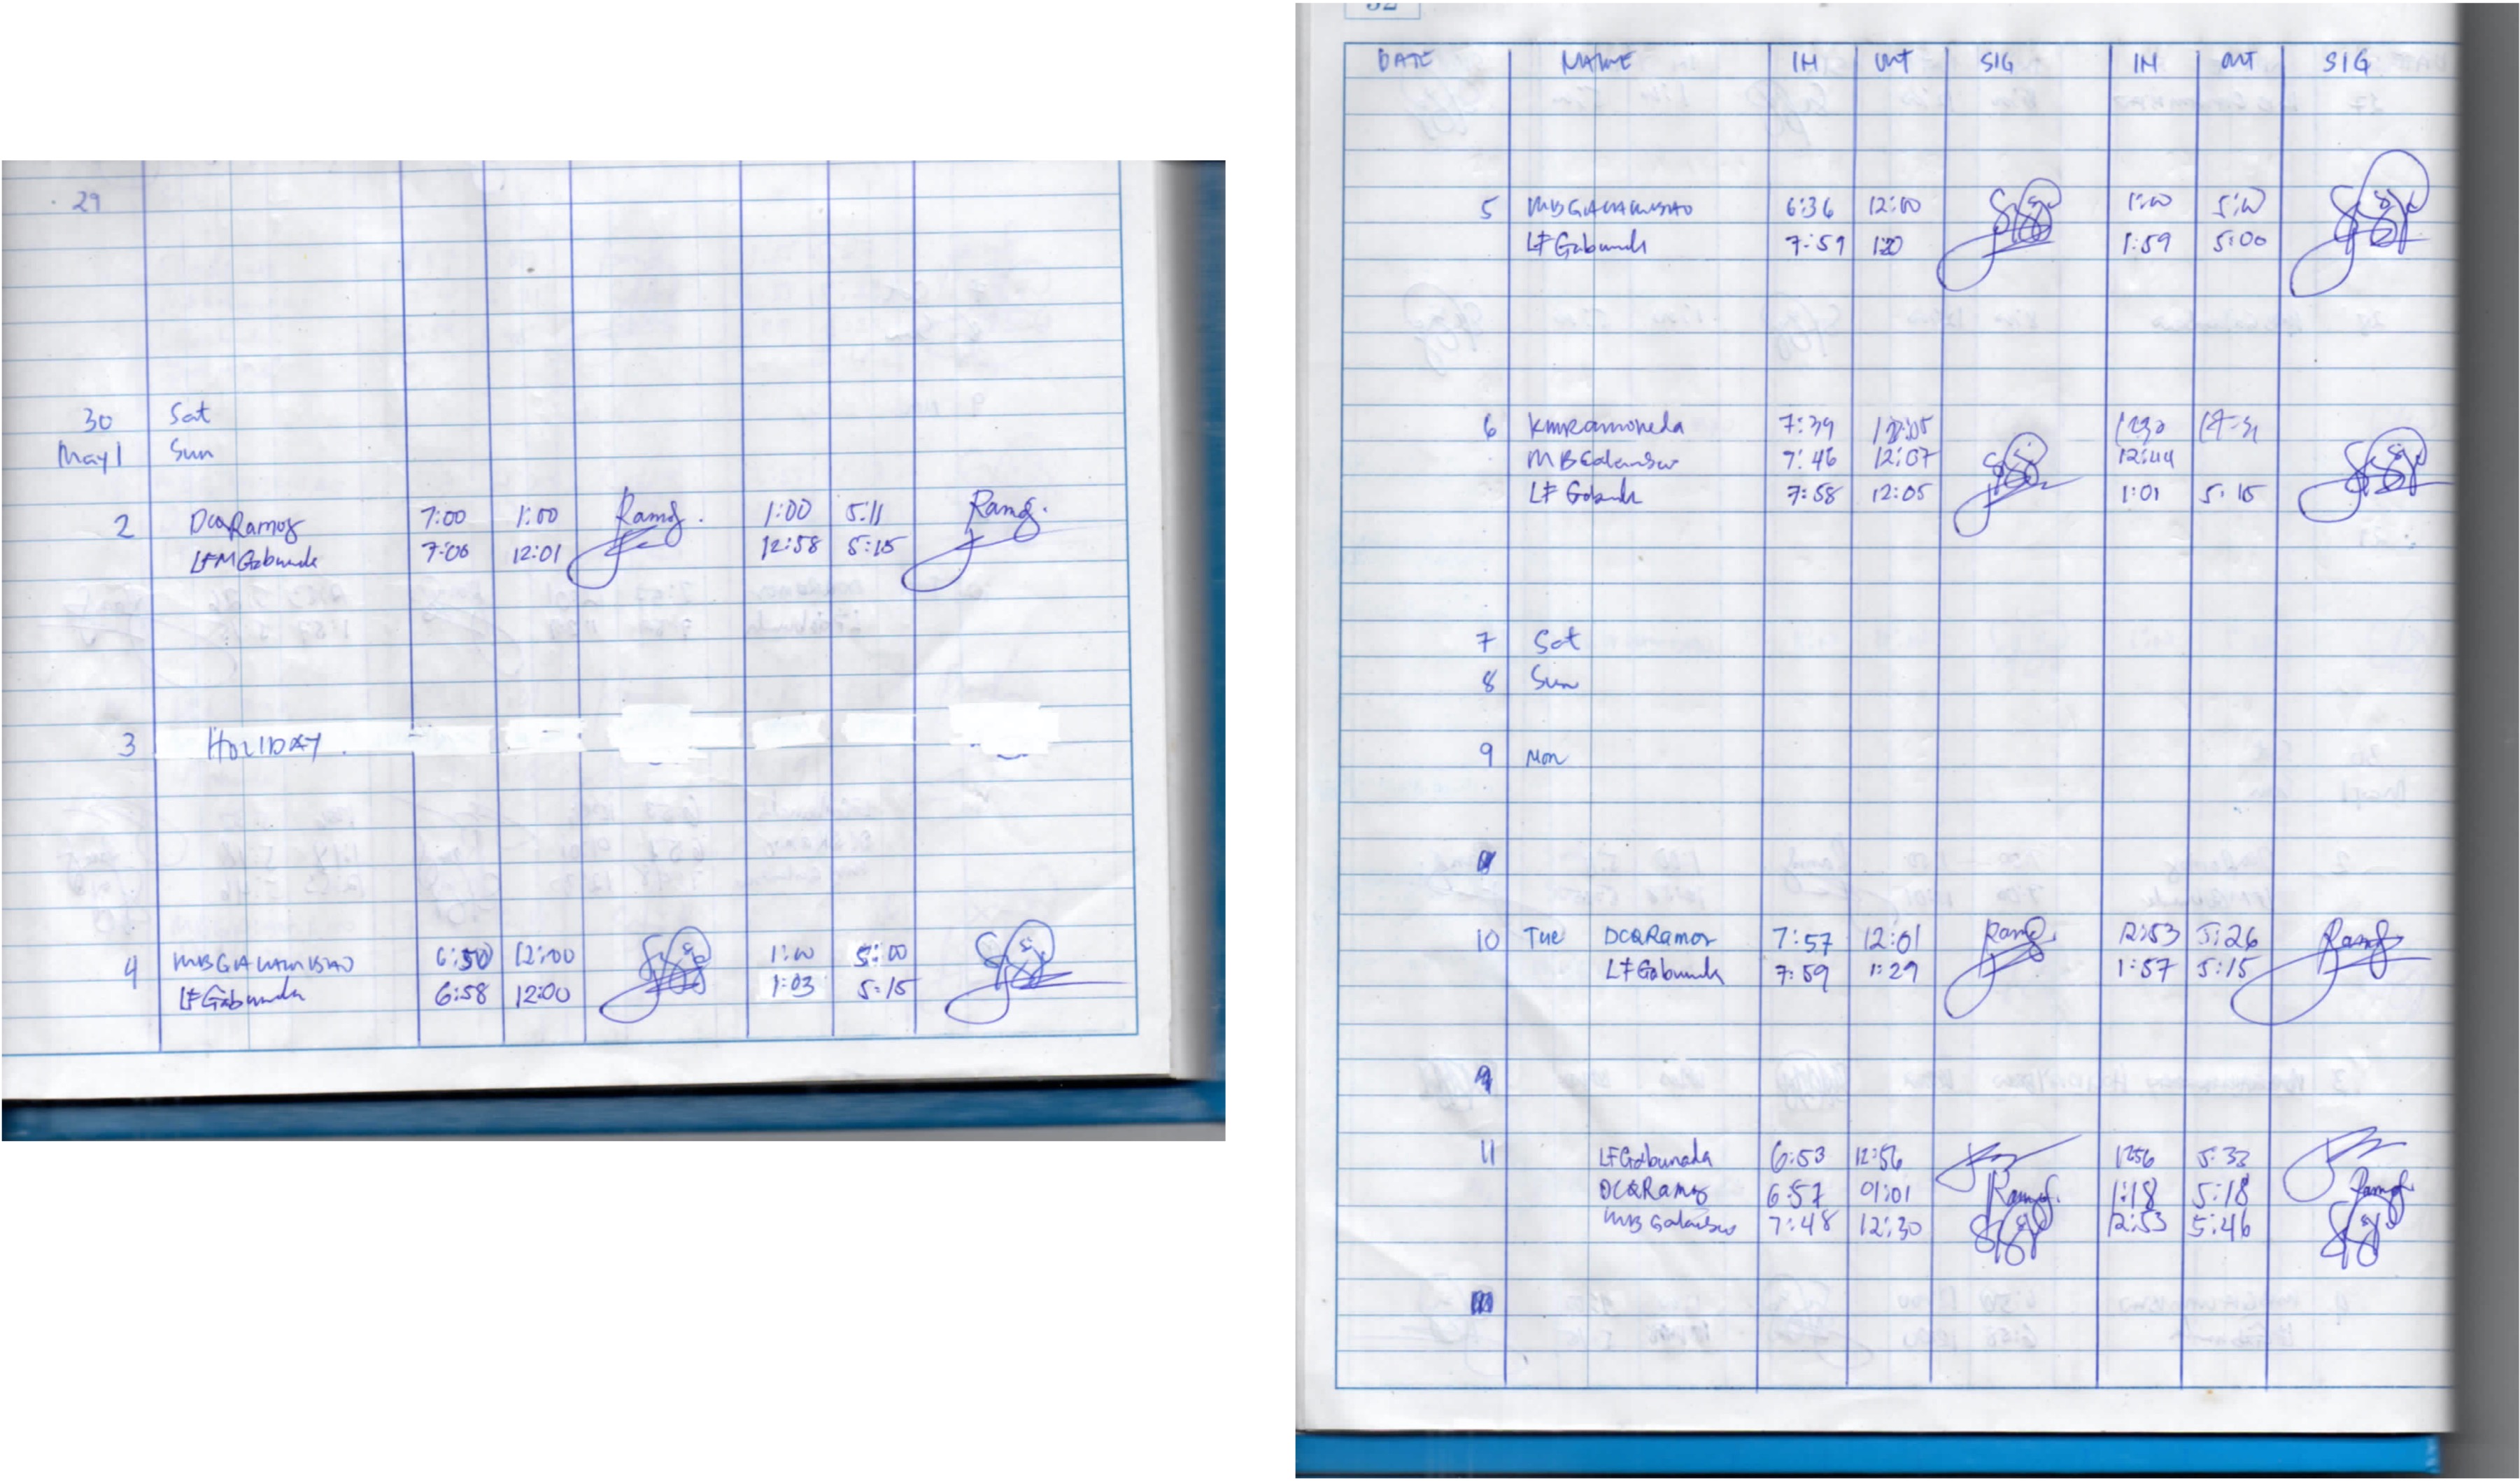 29
30 Sat
May 1 Sun
2 DCQRamos 7:00 1:00 Ramos. 1:00 5:11 Ramos.
LFMGabunada 7:06 12:01 12:58 5:15
3 HOLIDAY.
4 6:50 12:00 1:00 5:00
LFGabunada 6:58 12:00 1:03 5:15
32
DATE NAME IN OUT SIG IN OUT SIG
5 6:36 12:00 1:00 5:00
LFGabunada 7:59 1:20 1:59 5:00
6 KMRamoneda 7:39
7:46 12:07 12:44
LFGabunada 7:58 12:05 1:01 5:15
7 Sat
8 Sun
9 Mon
10 Tue DCQRamos 7:57 12:01 Ramos 12:53 5:26 Ramos
LFGabunada 7:59 1:29 1:57 5:15
9
11 LFGabunada 6:53 12:56 1256 5:33
DCQRamos 6:57 01:01 Ramos. 1:18 5:18 Ramos
7:48 12:30 12:53 5:46